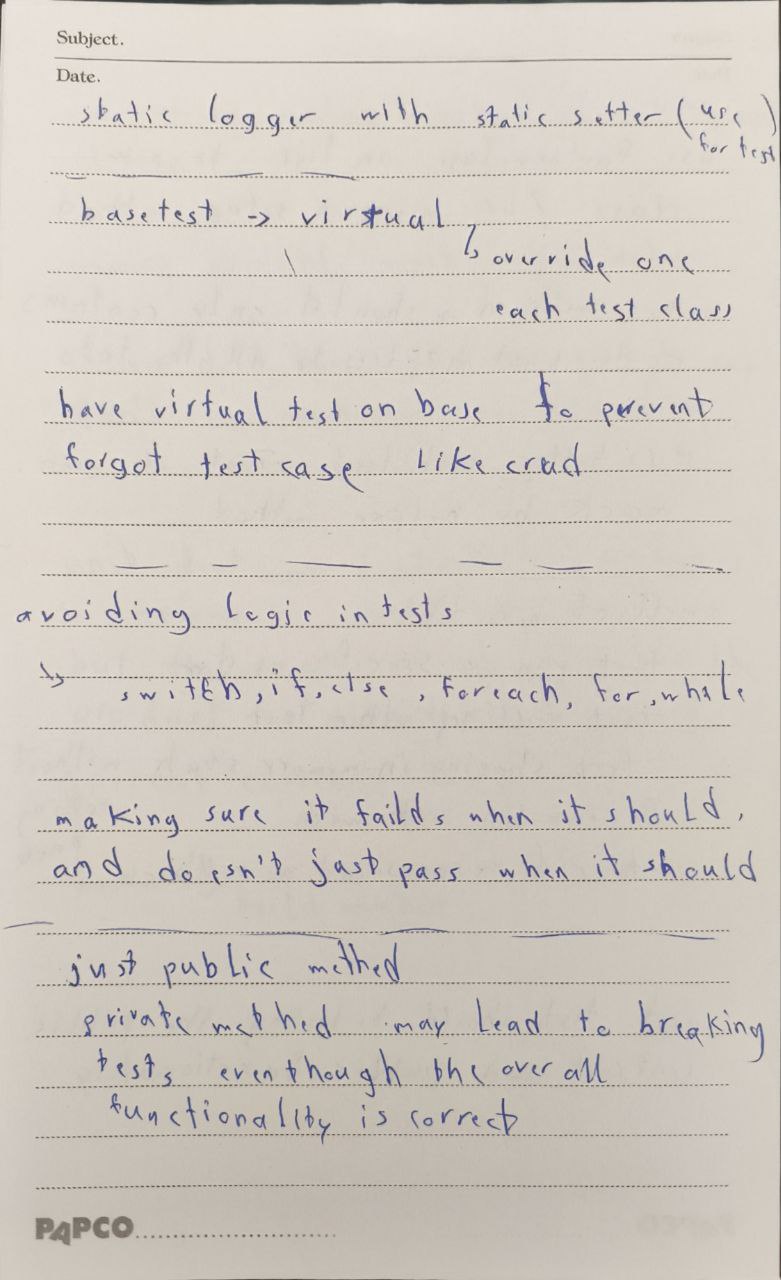 Subject.
Date.
static logger with static setter (use for test)
basetest -> virtual
↳ override one
each test class
have virtual test on base to perevent
forgot test case like crud
avoiding logic in tests
↳ switch, if, else, foreach, for, while
making sure it faild s when it should,
and doesn't just pass when it should
just public method
private method may lead to breaking
tests even though the over all
functionality is correct
PAPCO